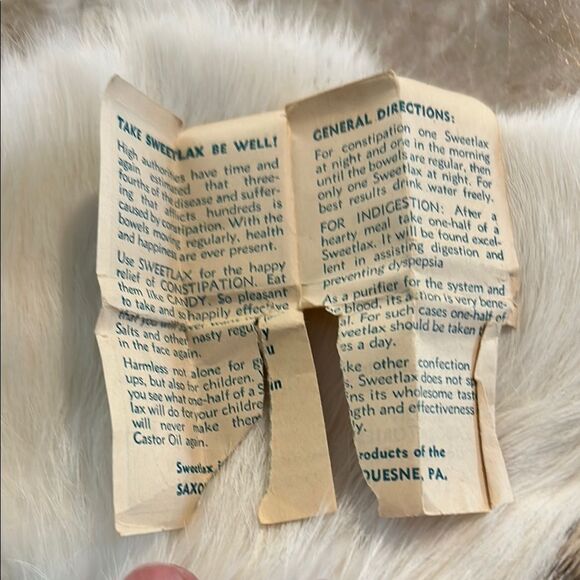 TAKE SWEETLAX BE WELL!
High authorities have time and
again estimated that three-
fourths of the disease and suffer-
ing that afflicts hundreds is
caused by constipation. With the
bowels moving regularly, health
and happiness are ever present.
Use SWEETLAX for the happy
relief of CONSTIPATION. Eat
them like CANDY. So pleasant
to take and so happily effective
that you
Salts and other nasty
in the face again.
Harmless not alone for
ups, but also for children.
you see what one-half of a
lax will do for your
will never make them
Castor Oil again.
Sweetlax,
SAXO
GENERAL DIRECTIONS:
For constipation one Sweetlax
at night and one in the morning
until the bowels are regular, then
only one Sweetlax at night. For
best results drink water freely.
FOR INDIGESTION: After a
hearty meal take one-half of a
Sweetlax. It will be found excel-
lent in assisting digestion and
preventing dyspepsia
As a purifier for the system and
blood, its action is very bene-
al. For such cases one-half of
Sweetlax should be taken
es a day.
ke other confection
s. Sweetlax does not
ns its wholesome
gth and effectiveness
ly.
roducts of the
DUESNE, PA.